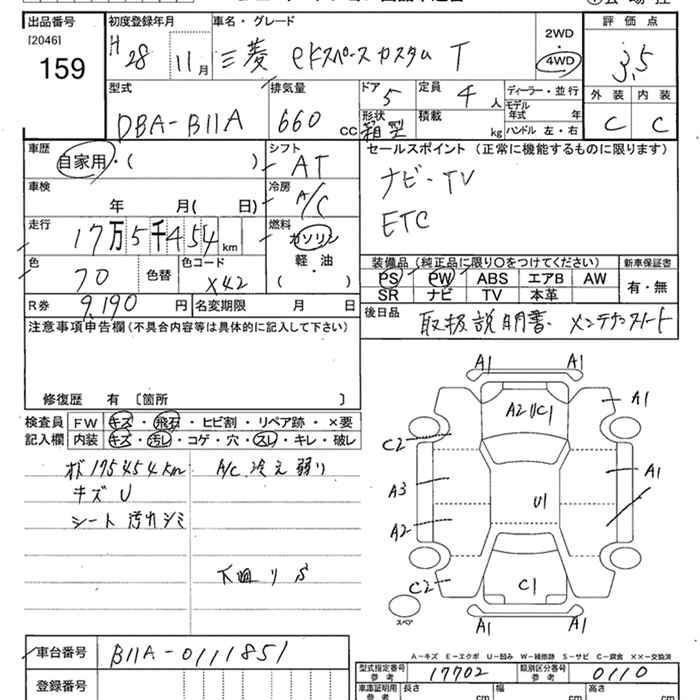 出品番号 初度登録年月 車名・グレード 評価点
[2046]
159
H28 11月 三菱 eKスペースカスタム T 2WD 4WD 3.5
型式 排気量 ドア 定員 ディーラー・並行 外装 内装
DBA-B11A 660 cc 5 4人 モデル年式 年 C C
形状 箱型 積載 kg ハンドル 左・右
車歴 シフト セールスポイント (正常に機能するものに限ります)
自家用・( ) AT ナビ・TV
車検 冷房
年 月( 日) A/C ETC
走行 燃料
17万5千454km ガソリン
軽・油
( )
色 色替 色コード 装備品 (純正品に限り○をつけてください) 新車保証書
70 X42 PS PW ABS エアB AW 有・無
SR ナビ TV 本革
R券 9,190円 名変期限 月 日
後日品 取扱説明書.
注意事項申告欄 (不具合内容等は具体的に記入して下さい)
修復歴 有 [箇所 ]
検査員記入欄 FW キズ・飛石・ヒビ割・リペア跡・×要
内装 キズ・汚レ・コゲ・穴・スレ・キレ・破レ
175454km A/C 冷え弱り
キズ U
シート 汚れシミ
下廻リS
A1 A1
A1
A2UC1
C2
A1
A3
U1
A2
C2
C1
スペア
A1 A1
A-キズ E-エクボ U-凹み W-補修跡 S-サビ C-腐食 ××-交換済
車台番号 B11A-0111851
型式指定番号 参考 17702 類別区分番号 参考 0110
登録番号
車庫証明用 参考 長さ cm 幅 cm 高さ cm